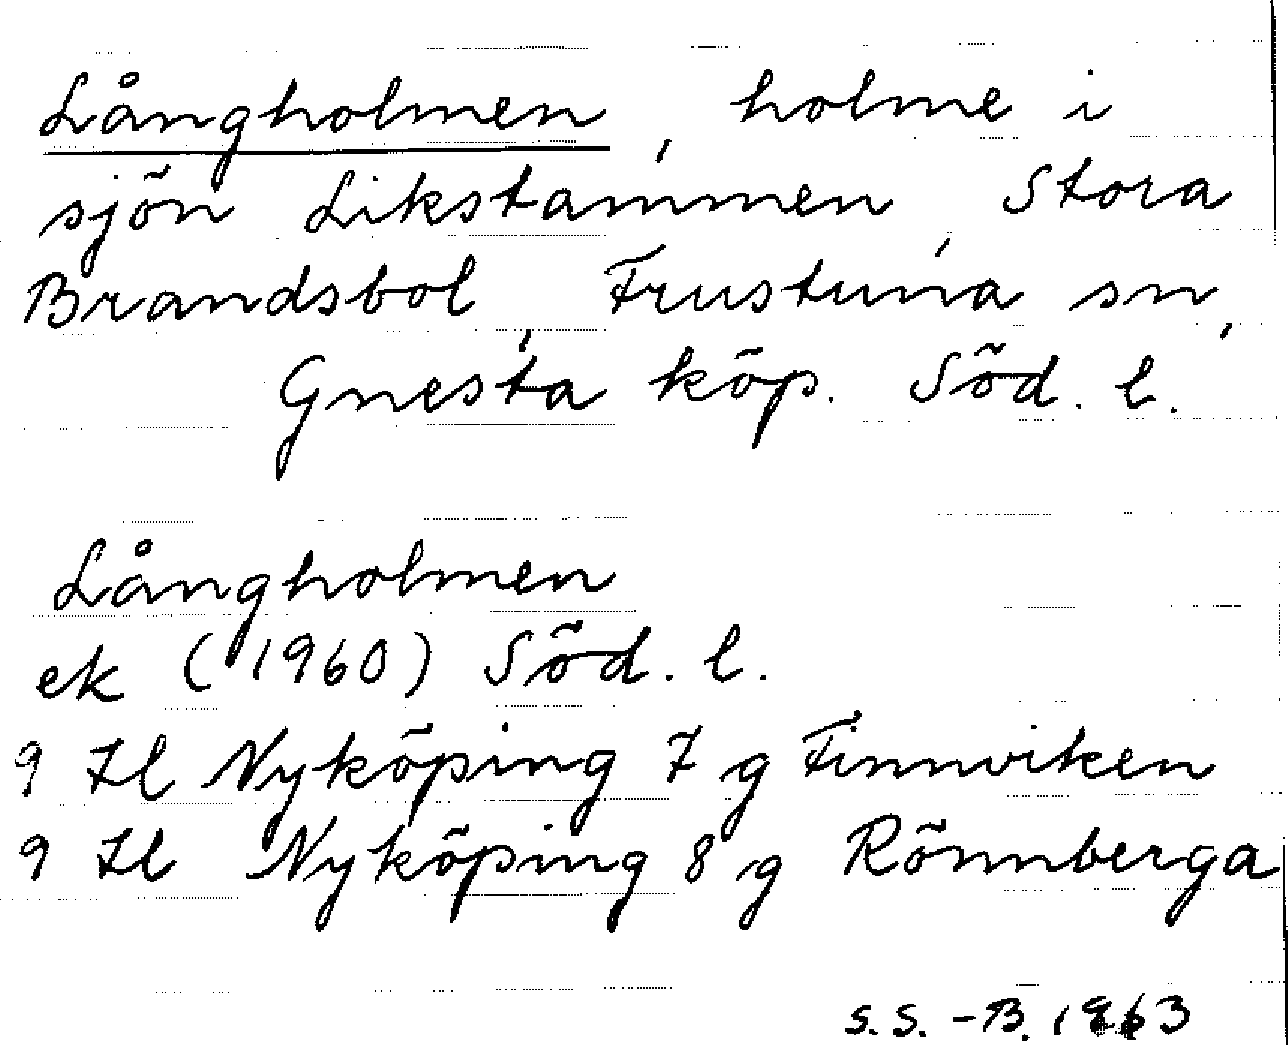 Långholmen, holme i
sjön Likstammen, Stora
Brandsbol, Frustuna sn,
Gnesta köp. Söd. l.
Långholmen
ek (1960) Söd. l.
9 Il Nyköping 7 g Finnviken
9 Il Nyköping 8 g Rönnberga
S.S.-B. 1963